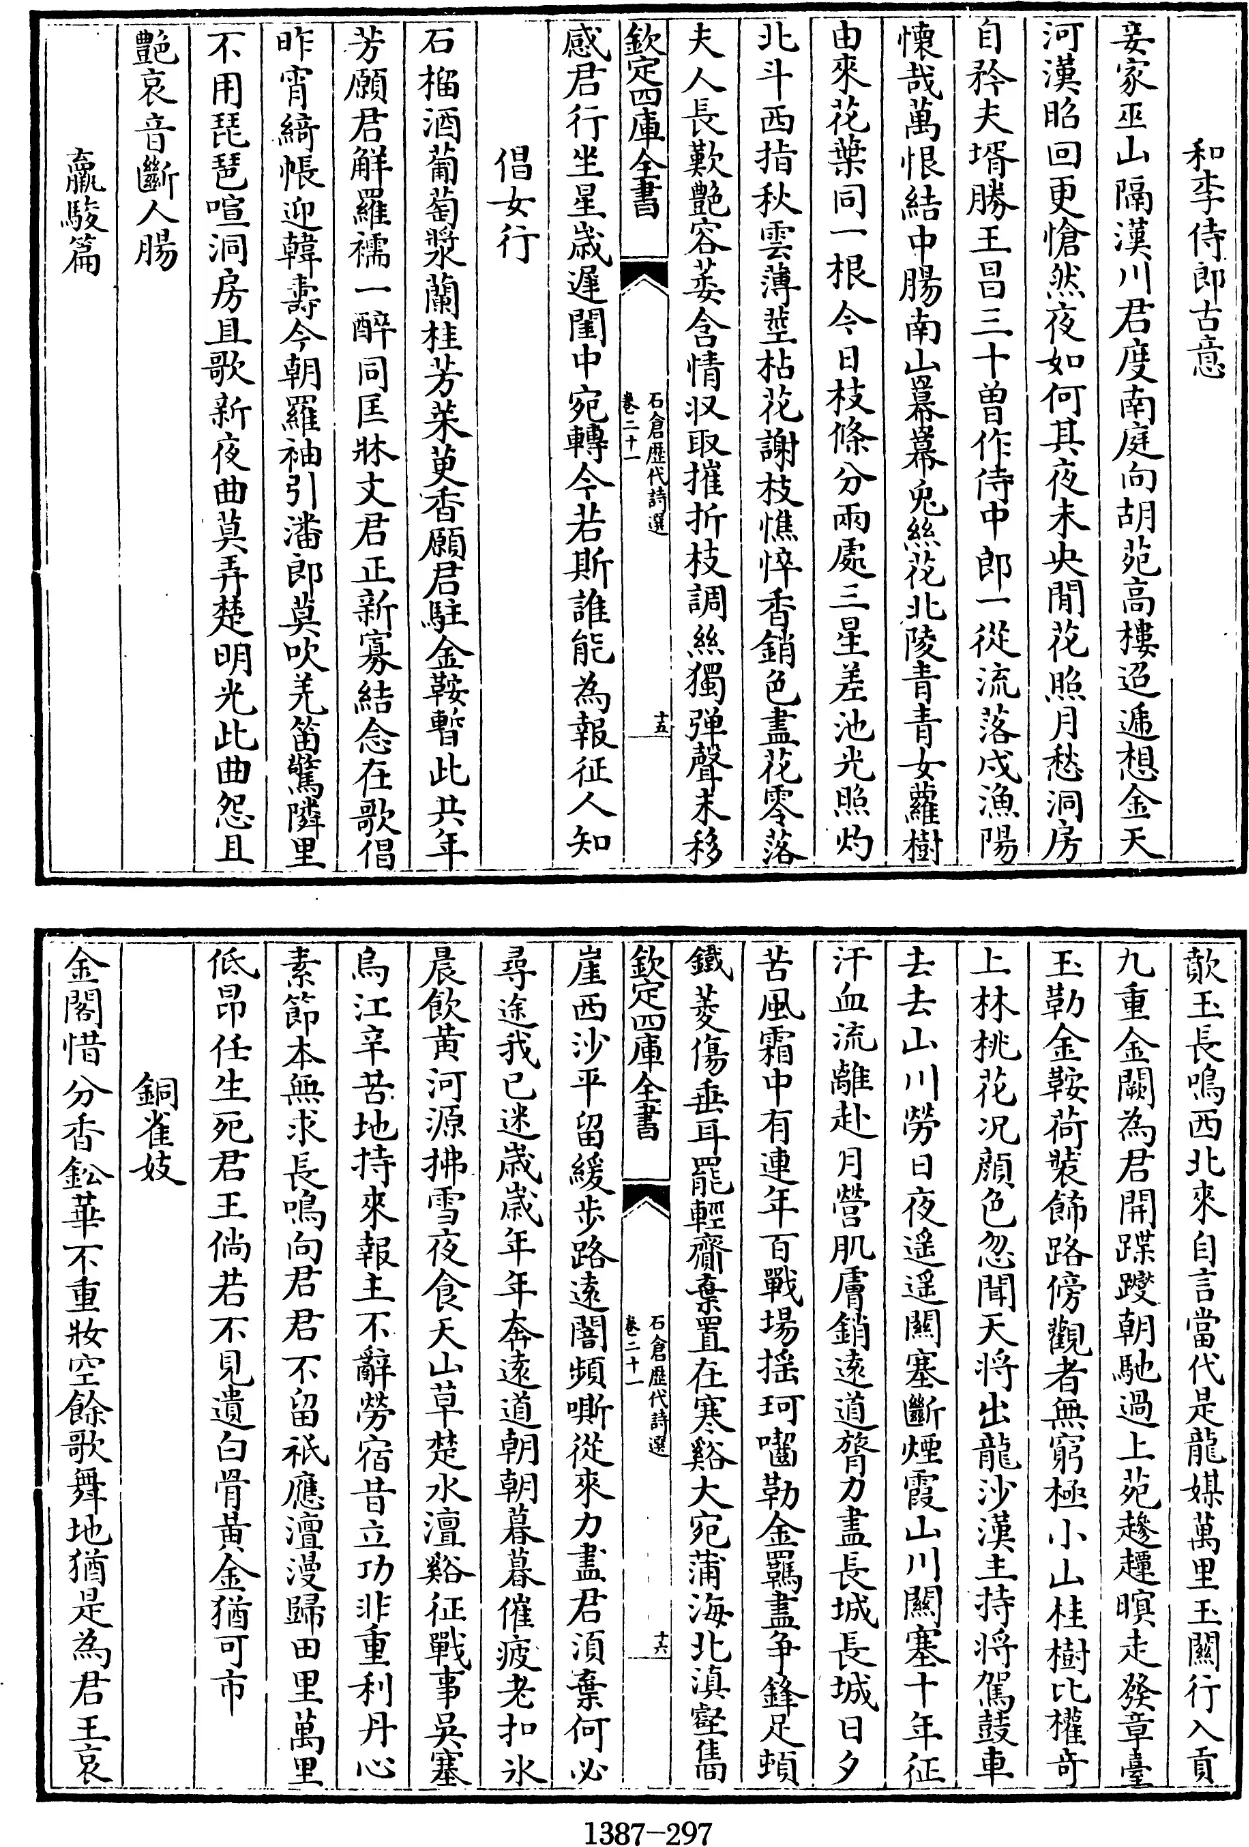 和李侍郎古意
妾家巫山隔漢川君度南庭向胡苑高樓迢遞想金天
河漢昭回更愴然夜如何其夜未央閒花照月愁洞房
自矜夫壻勝王昌三十曽作侍中郎一從流落戍漁陽
懐哉萬恨結中腸南山幕幕兔絲花北陵青青女蘿樹
由來花葉同一根今日枝條分兩處三星差池光照灼
北斗西指秋雲薄莖枯花謝枝憔悴香銷色盡花零落
夫人長歎艶容萎含情収取摧折枝調絲獨弹聲未移
欽定四庫全書
石倉歴代詩選
卷二十一
十五
感君行坐星歳遲閨中宛轉今若斯誰能為報征人知
倡女行
石榴酒葡萄漿蘭桂芳茱萸香願君駐金鞍暫此共年
芳願君解羅襦一醉同匡牀文君正新寡結念在歌倡
昨宵綺帳迎韓壽今朝羅袖引潘郎莫吹羌笛驚隣里
不用琵琶喧洞房且歌新夜曲莫弄楚明光此曲怨且
艶哀音斷人腸
羸駿篇
歕玉長鳴西北來自言當代是龍媒萬里玉關行入貢
九重金闕為君開蹀躞朝馳過上苑趁趯暝走發章臺
玉勒金鞍荷裝飾路傍觀者無窮極小山桂樹比權奇
上林桃花况顔色忽聞天將出龍沙漢主持將駕鼓車
去去山川勞日夜遥遥關塞斷煙霞山川關塞十年征
汗血流離赴月營肌膚銷遠道膂力盡長城長城日夕
苦風霜中有連年百戰場揺珂囓勒金羈盡争鋒足頓
鐵菱傷垂耳罷輕齎棄置在寒谿大宛蒲海北滇壑雋
欽定四庫全書
石倉歴代詩選
卷二十一
十六
崖西沙平留緩步路遠闇頻嘶從來力盡君須棄何必
尋途我已迷歳歳年年奔遠道朝朝暮暮催疲老扣氷
晨飲黄河源拂雪夜食天山草楚水澶谿征戰事吳塞
烏江辛苦地持來報主不辭勞宿昔立功非重利丹心
素節本無求長鳴向君君不留祇應澶漫歸田里萬里
低昂任生死君王倘若不見遺白骨黄金猶可市
銅雀妓
金閣惜分香鈆華不重妝空餘歌舞地猶是為君王哀
1387-297